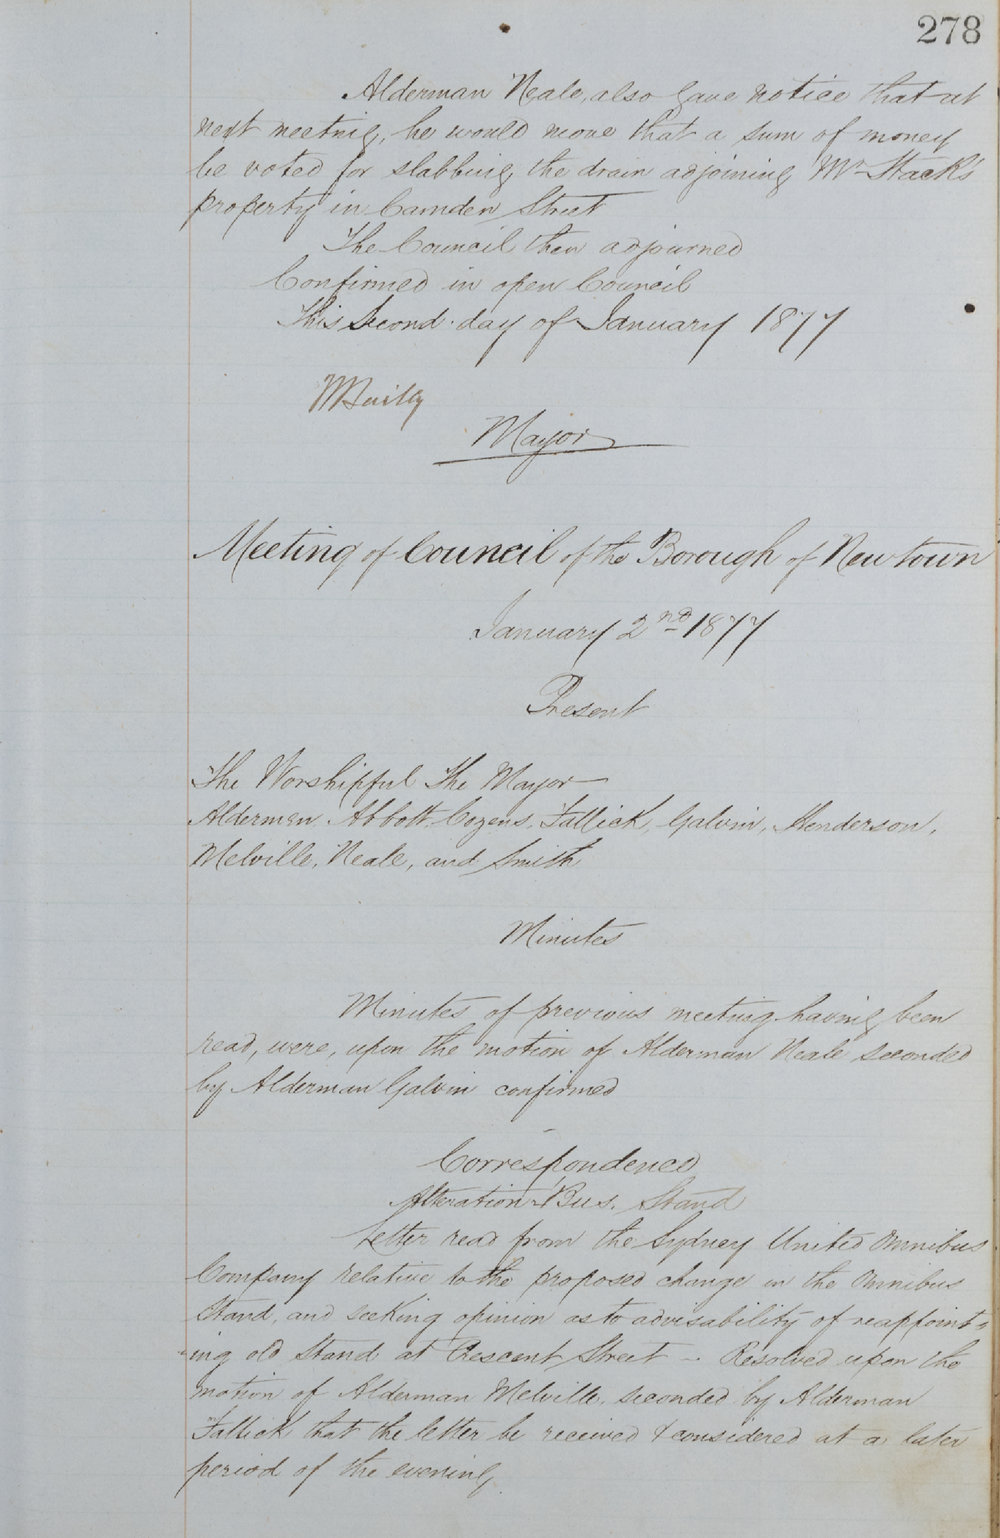 278
Alderman Neale, also gave notice that at
next meeting, he would move that a sum of money
be voted for slabbing the drain adjoining Mr Stack's
property in Camden Street
The Council then adjourned
Confirmed in open Council
This Second day of January 1877
Mayor
Meeting of Council of the Borough of Newtown
January 2nd 1877
Present
The Worshipful The Mayor
Aldermen Abbott, Cozens, Fallick, Galvin, Henderson,
Melville, Neale, and Smith
Minutes
Minutes of previous meeting having been
read, were, upon the motion of Alderman Neale seconded
by Alderman Galvin confirmed
Correspondence
Alteration Bus. Stand
Letter read from the Sydney United Omnibus
Company relative to the proposed change in the Omnibus
Stand, and seeking opinion as to advisability of reappoint-
-ing old Stand at Crescent Street - Resolved upon the
motion of Alderman Melville, seconded by Alderman
Fallick that the letter be received & considered at a later
period of the evening